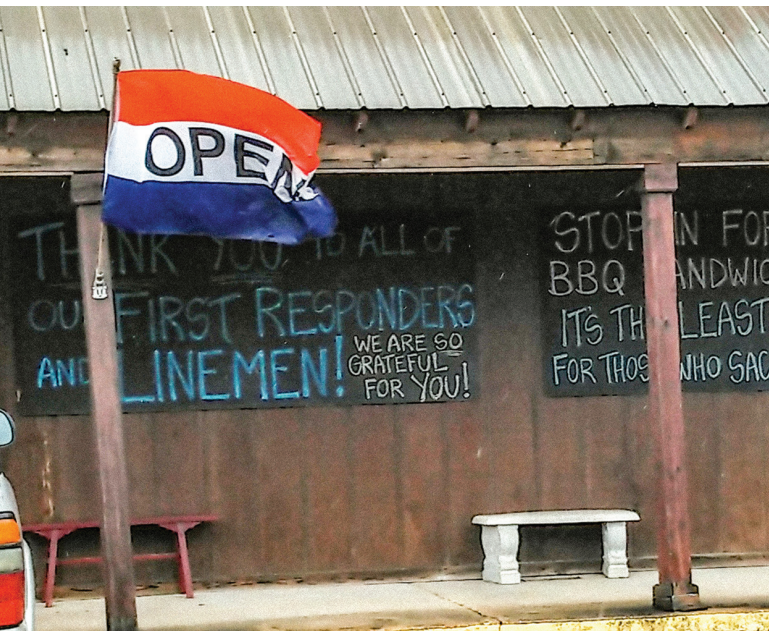 OPEN
THANK YOU TO ALL OF
OUR FIRST RESPONDERS
AND LINEMEN!
WE ARE SO
GRATEFUL
FOR YOU!
STOP IN FOR
BBQ SANDWIC
IT'S THE LEAST
FOR THOSE WHO SAC